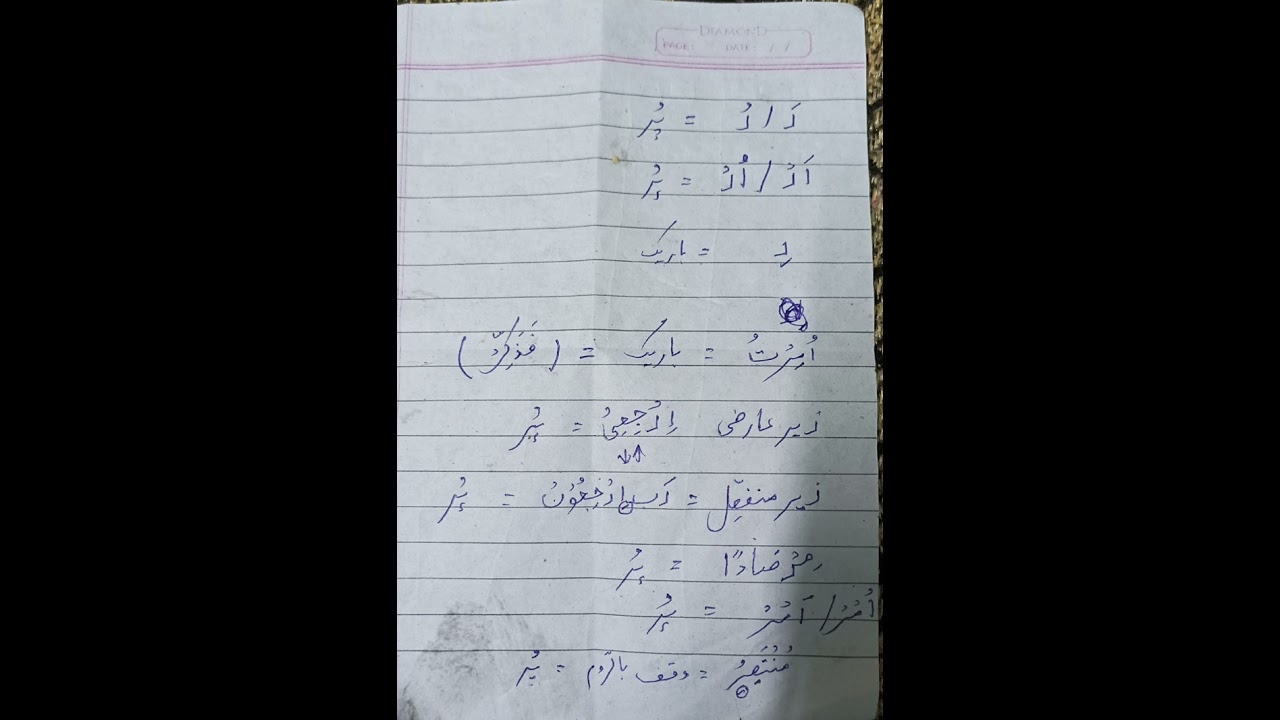 DIAMOND
PAGE: DATE: / /
رَ / رُ = پُر
اَرْ / اُرْ = پُر
رِ = باریک
اُمِرْتُ = باریک = ( فَذَکِّرْ )
زیر عارضی اِرْجِعِیْ = پُر
زیر منفصِل = رَبِ ارْجِعُوْنِ = پُر
مِرْصَادًا = پُر
اُمُرْ / اَمُرْ = پُر
مُنْتَصِرُ = وقف بالرّوم = پُر